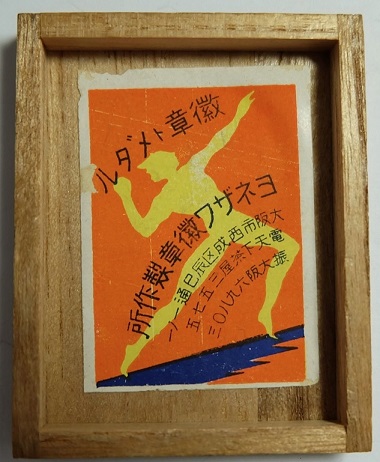 徽章トメダル
ヨネザワ徽章製作所
大阪市西成区辰巳通一ノ一
電天下茶屋三五七五
振大阪六九八〇三